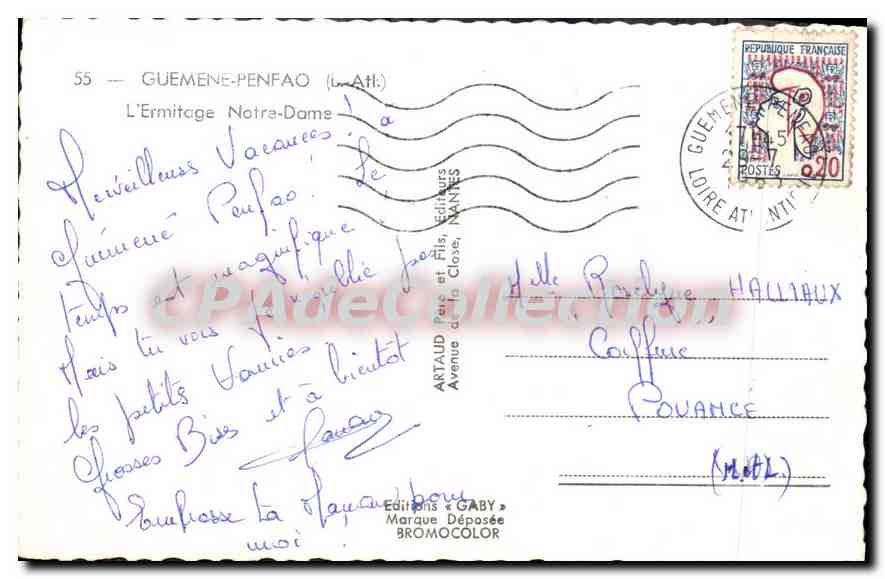 55 — GUEMENE-PENFAO (L.-Atl.)
L'Ermitage Notre-Dame
Merveilleuses Vacances ! à
Guémené Penfao ! Le
temps est magnifique !
Mais tu vois je n'oublie pas
les petits
Grosses Bises et à bientôt
Embrasse ta Maman pour
moi !
ARTAUD Père et Fils, Editeurs
Avenue de la Close, NANTES
Editions « GABY »
Marque Déposée
BROMOCOLOR
REPUBLIQUE FRANÇAISE
POSTES 0,20
GUEMENE PENFAO
LOIRE ATLANTIQUE
Mlle HALLIAUX
Coiffure
POUANCÉ
(M.etL)
CPAdeCollection